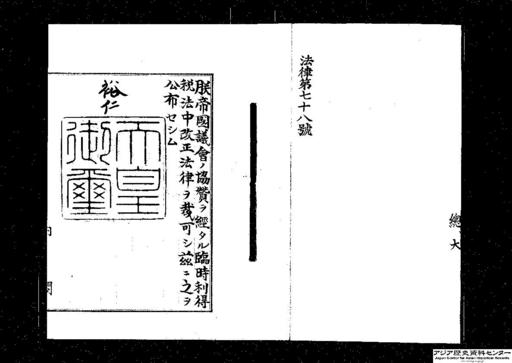 法律第七十八號
總
大
朕帝國議會ノ協賛ヲ經タル臨時利得
税法中改正法律ヲ裁可シ茲ニ之ヲ
公布セシム
裕仁
天皇
御璽
内
閣
アジア歴史資料センター
Japan Center for Asian Historical Records